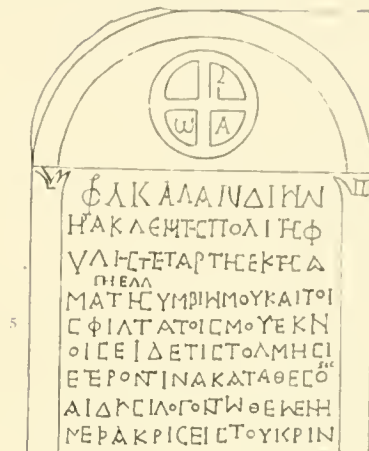 Ρ
ω Α
ΦΛΚΑΛΑΙΥΔΙΗΝ
ΗΡΑΚΛΕΩΤΗϹΠΟΛΙΤΗϹΦ
ΥΛΗϹΤΕΤΑΡΤΗϹΕΚΤΗϹΑ
ΠΗΕΛΛ
ΜΑΤΗϹΥΜΒΙΗΜΟΥΚΑΙΤΟΙ
5 ϹΦΙΛΤΑΤΟΙϹΜΟΥΕΚΝ
ΟΙϹΕΙΔΕΤΙϹΤΟΛΜΗϹΙ
ΕΤΕΡΟΝΤΙΝΑΚΑΤΑΘΕϹΟ sic
ΑΙΔΗϹΙΛΟΓΟΝΤΩΘΕΩΕΝΗ
ΜΕΡΑΚΡΙϹΕΙϹΤΟΥΚΡΙΝ